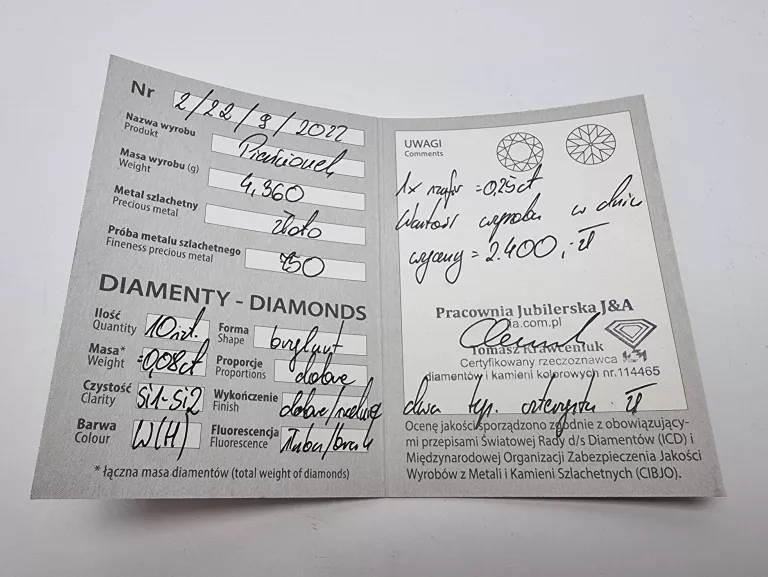 Nr 2/22/9/2022
Nazwa wyrobu Pierścionek
Produkt
Masa wyrobu (g) 4,360
Weight
Metal szlachetny złoto
Precious metal
Próba metalu szlachetnego 750
Fineness precious metal
DIAMENTY - DIAMONDS
Ilość 10 szt. Forma brylant
Quantity Shape
Masa* =0,08ct Proporcje dobre
Weight Proportions
Czystość Si1-Si2 Wykończenie dobre/
Clarity Finish
Barwa W(H) Fluorescencja słaba/brak
Colour Fluorescence
* łączna masa diamentów (total weight of diamonds)
UWAGI
Comments
1x szafir =0,25ct
Wartość wyrobu w dniu
wyceny = 2.400,- zł
Pracownia Jubilerska J&A
ja.com.pl
Tomasz
Certyfikowany rzeczoznawca
diamentów i kamieni kolorowych nr.114465
dwa tys. czterysta zł
Ocenę jakości sporządzono zgodnie z obowiązujący-
mi przepisami Światowej Rady d/s Diamentów (ICD) i
Międzynarodowej Organizacji Zabezpieczenia Jakości
Wyrobów z Metali i Kamieni Szlachetnych (CIBJO).